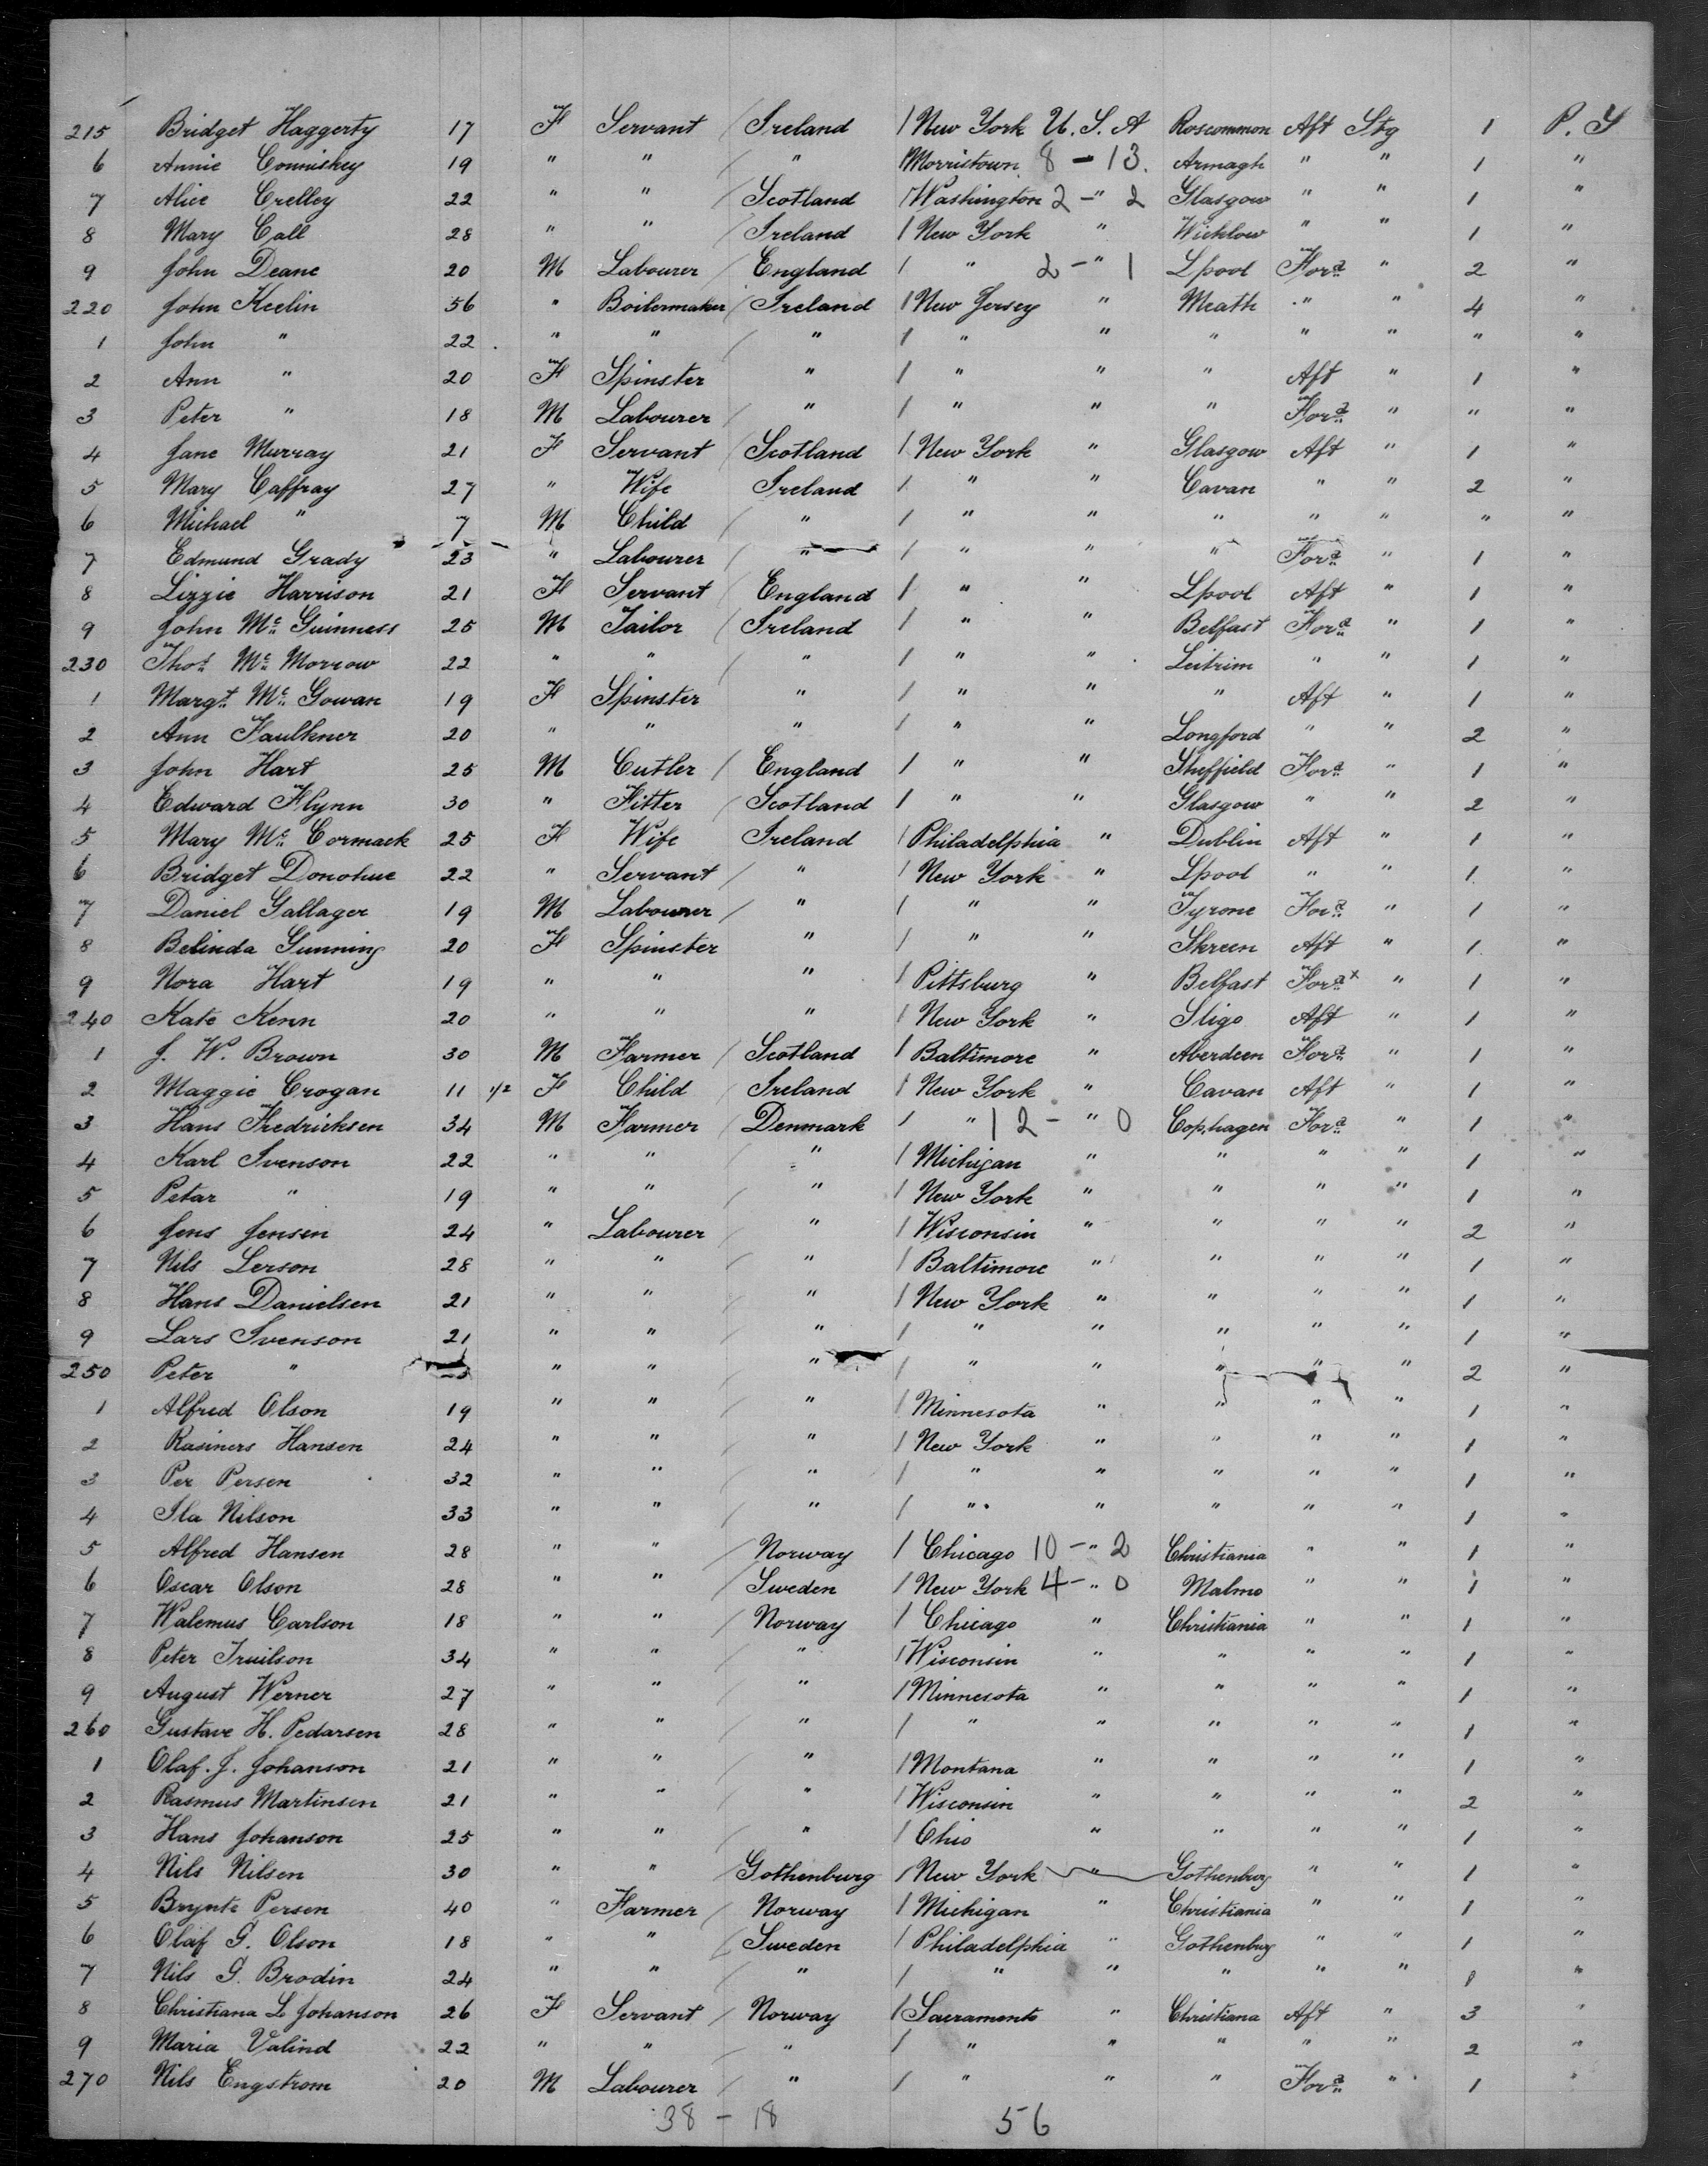 215 Bridget Haggerty 17 F Servant / Ireland / New York U. S. A Roscommon Aft Stg 1 P. Y
6 Annie Conniskey 19 " " / " / Morristown 8 - 13. Armagh " " 1 "
7 Alice Crelley 22 " " / Scotland / Washington 2 - " 2 Glasgow " " 1 "
8 Mary Call 28 " " / Ireland / New York " Wicklow " " 1 "
9 John Deane 20 M Labourer / England / " 2 - " 1 Lpool Ford " 2 "
220 John Keelin 56 " Boilermaker / Ireland / New Jersey " Meath " " 4 "
1 John " 22 " " / " / " " " " " " "
2 Ann " 20 F Spinster " / " " " Aft " 1 "
3 Peter " 18 M Labourer / " / " " " Ford " " "
4 Jane Murray 21 F Servant / Scotland / New York " Glasgow Aft " 1 "
5 Mary Caffray 27 " Wife Ireland / " " Cavan " " 2 "
6 Michael " 7 M Child / " / " " " " " " "
7 Edmund Grady 23 " Labourer / " / " " " Ford " 1 "
8 Lizzie Harrison 21 F Servant / England / " " Lpool Aft " 1 "
9 John Mc Guinness 25 M Tailor / Ireland / " " Belfast Ford " 1 "
230 Thos Mc Morrow 22 " " / " / " " Leitrim " " 1 "
1 Margt Mc Gowan 19 F Spinster " / " " " Aft " 1 "
2 Ann Faulkner 20 " " " / " " Longford " " 2 "
3 John Hart 25 M Cutler / England / " " Sheffield Ford " 1 "
4 Edward Flynn 30 " Fitter / Scotland / " " Glasgow " " 2 "
5 Mary Mc Cormack 25 F Wife Ireland / Philadelphia " Dublin Aft " 1 "
6 Bridget Donohue 22 " Servant / " / New York " Lpool " " 1 "
7 Daniel Gallager 19 M Labourer / " / " " Tyrone Ford " 1 "
8 Belinda Gunning 20 F Spinster " / " " Skreen Aft " 1 "
9 Nora Hart 19 " " " / Pittsburg " Belfast Ford x " 1 "
240 Kate Kenn 20 " " " / New York " Sligo Aft " 1 "
1 J. W. Brown 30 M Farmer / Scotland / Baltimore " Aberdeen Ford " 1 "
2 Maggie Crogan 11 1/2 F Child / Ireland / New York " Cavan Aft " 1 "
3 Hans Fredricksen 34 M Farmer / Denmark / " 12 - " 0 Cophagen Ford " 1 "
4 Karl Svenson 22 " " / " / Michigan " " " " 1 "
5 Petar " 19 " " / " / New York " " " " 1 "
6 Jens Jensen 24 " Labourer / " / Wisconsin " " " " 2 "
7 Nils Lerson 28 " " / " / Baltimore " " " " 1 "
8 Hans Danielsen 21 " " / " / New York " " " " 1 "
9 Lars Svenson 21 " " / " / " " " " " 1 "
250 Peter " " " / " / " " " " " 2 "
1 Alfred Olson 19 " " / " / Minnesota " " " " 1 "
2 Rasiners Hansen 24 " " / " / New York " " " " 1 "
3 Per Persen 32 " " / " / " " " " " 1 "
4 Ila Nilson 33 " " / " / " " " " " 1 "
5 Alfred Hansen 28 " " / Norway / Chicago 10 - " 2 Christiania " " 1 "
6 Oscar Olson 28 " " / Sweden / New York 4 - " 0 Malmo " " 1 "
7 Walemus Carlson 18 " " / Norway / Chicago " Christiania " " 1 "
8 Peter Truilson 34 " " / " / Wisconsin " " " " 1 "
9 August Werner 27 " " / " / Minnesota " " " " 1 "
260 Gustave H. Pedarsen 28 " " / " / " " " " " 1 "
1 Olaf. J. Johanson 21 " " / " / Montana " " " " 1 "
2 Rasmus Martinsen 21 " " / " / Wisconsin " " " " 2 "
3 Hans Johanson 25 " " / " / Ohio " " " " 1 "
4 Nils Nilsen 30 " " Gothenburg / New York " Gothenburg " " 1 "
5 Brynte Persen 40 " Farmer / Norway / Michigan " Christiania " " 1 "
6 Olaf G. Olson 18 " " / Sweden / Philadelphia " Gothenburg " " 1 "
7 Nils G. Brodin 24 " " / " / " " " " " 1 "
8 Christiana L Johanson 26 F Servant / Norway / Sacramento " Christiana Aft " 3 "
9 Maria Valind 22 " " / " / " " " " " 2 "
270 Nils Engstrom 20 M Labourer / " / " " " Ford " 1 "
38 - 18 56